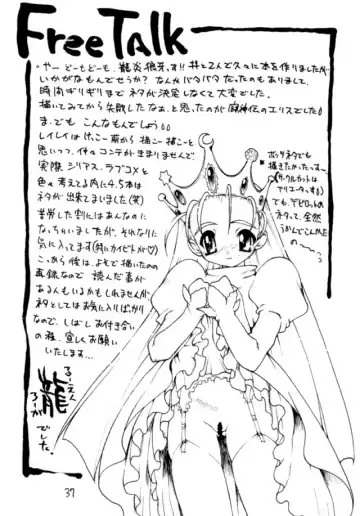 Free Talk
・やーどーもどーも、龍炎狼牙っす!! 井上と2人で久々に本を作りましたが
いかがなもんでせうか? なんかバタバタだったのもありまして、
時間ギリギリまでネタが決定しなくて大変でした。
描いてみてから失敗したなぁ、と思ったのが闘神伝のエリスでした
ま、でも こんなもんでしょう
レイレイはけっこー前から描こー描こーと
思いつつ、仲々コンテが生まりませんで、
実際シリアス、ラブコメと
色々考えてる内に4、5本は
ネタが出来てまいました(笑)
苦労した割にはあんなのに
なっちゃいましたが、それなりに
気に入ってます(特にカイビトが♡)
・こっから後は、よそで描いたのの
再録なので 読んだ事が
あるんもいるかもしれませんが
ネタとしてはお気に入りばっかり
なので、しばしお付き合い
の程、宜しくお願い
いたします…
ボツネタでも
描きたかったっすー
(サークルカットは
アリエータっす)
でも、デビロットの
ネタって、全然
うかんでこんのよ
〜〜〜
るーえん
龍
ろーが
でした。
37